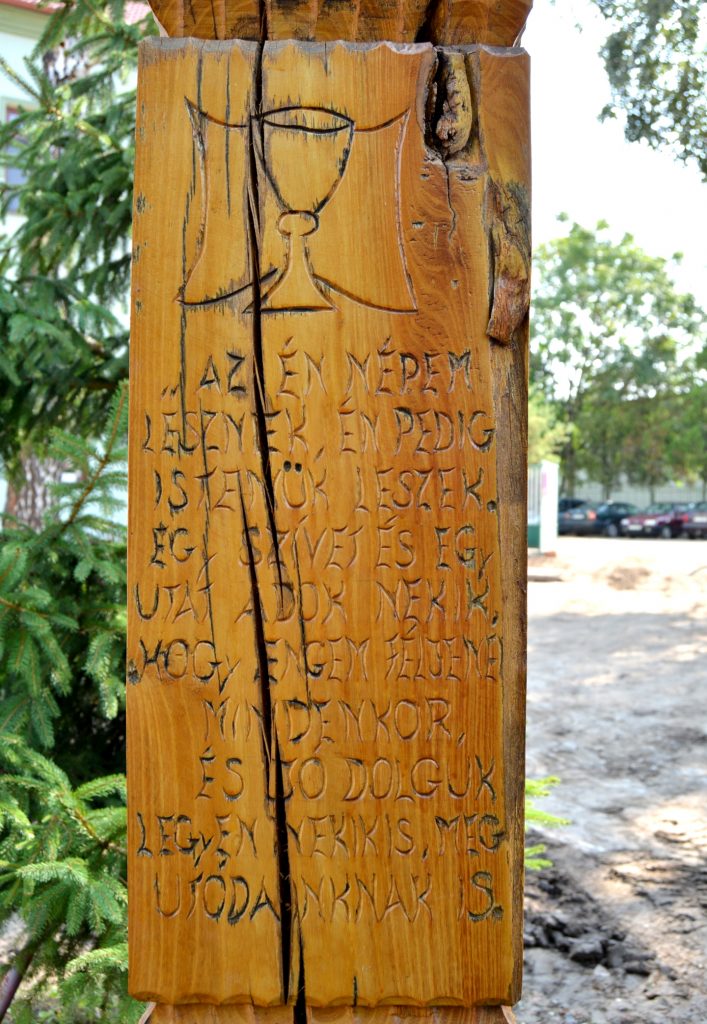 AZ ÉN NÉPEM
LĒSZNEK, ÉN PEDIG
ISTENÜK LESZEK.
ÉGY SZÍVET ÉS EGY
UTAT ADOK NEKIK,
HOGY ENGEM FÉLJENEK
MINDENKOR,
ÉS JÓ DOLGUK
LEGYEN NEKIK IS, MEG
UTÓDAINKNAK IS.